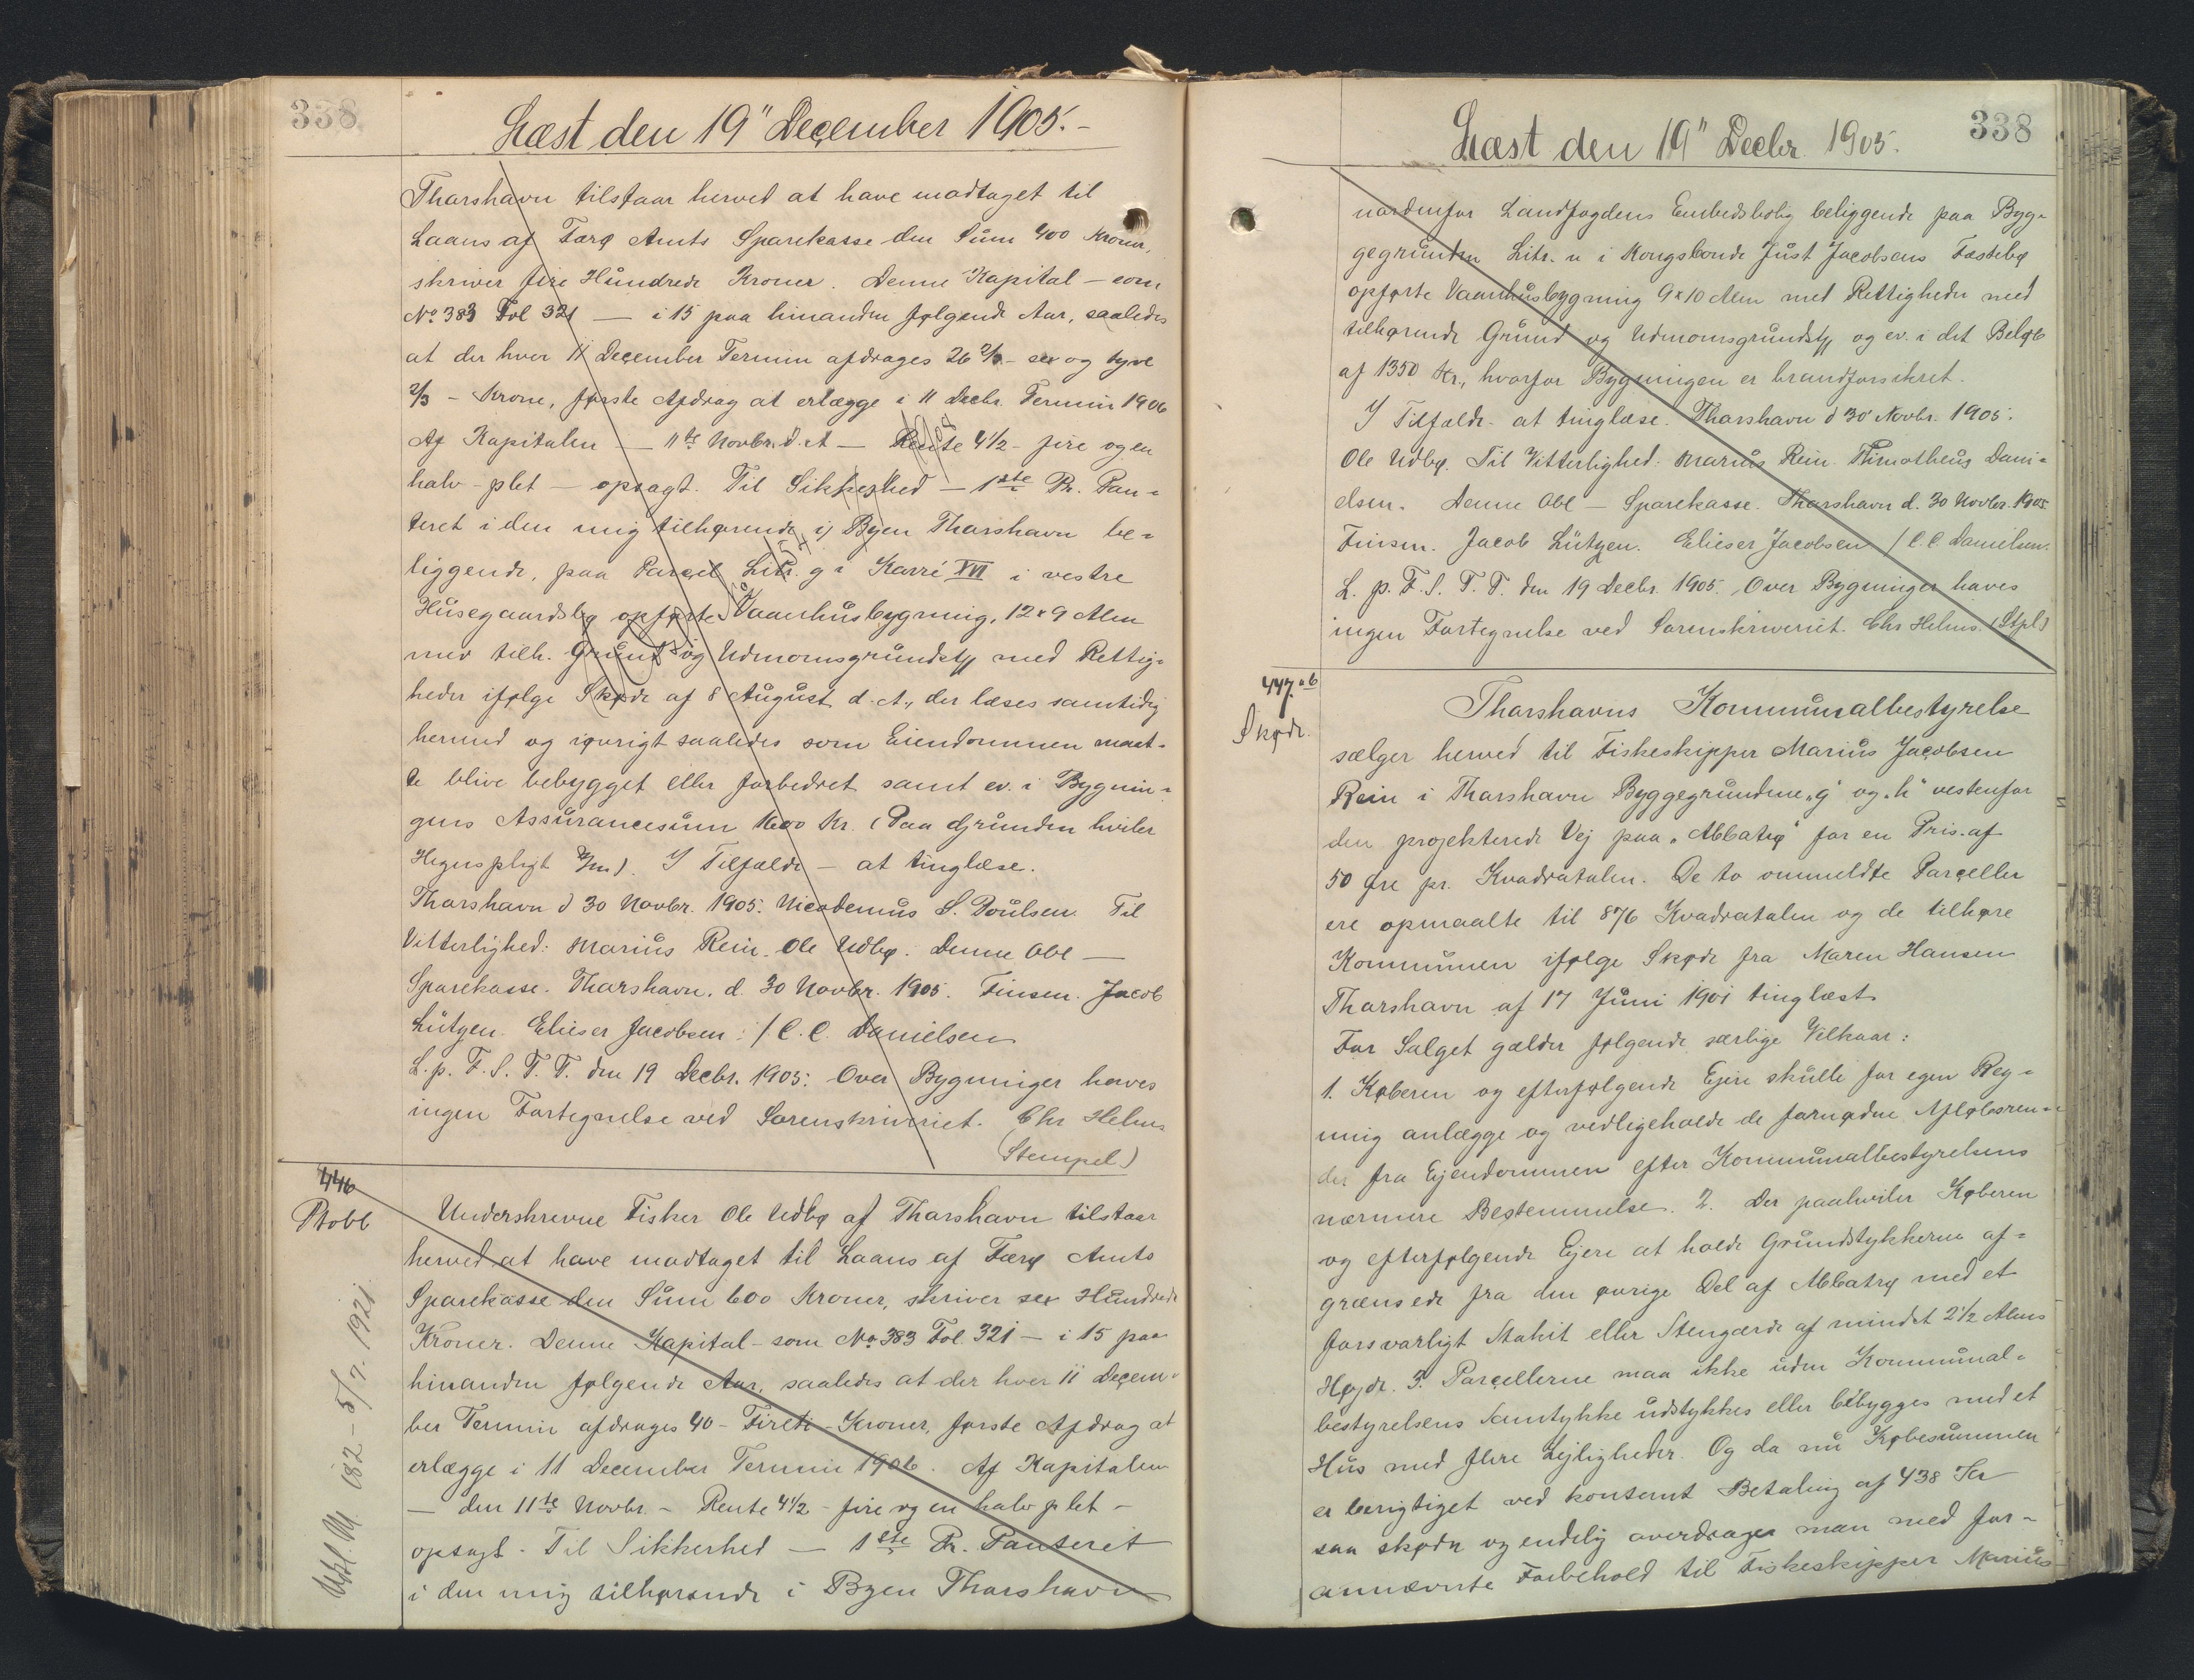 338
Læst den 19" December 1905.-
Tharshavn tilstaar herved at have modtaget til
Laans af Færø Amts Sparekasse den Sum 400 Kroner,
skriver fire Hundrede Kroner. Denne Kapital - som
No 383 Fol 321 — i 15 paa hinanden følgende Aar, saaledes
at der hver 11 December Termin afdrages 26 2/3 - sex og tyve
2/3 - Krone, første Afdrag at erlægge i 11 Decbr. Termin 1906
Af Kapitalen — 11te Novbr. d. A — Rente 4 1/2 - fire og en
halv - plet - opsagt. Til Sikkerhed - 1ste Pr. Pan=
teret i den mig tilhørende, i Byen Tharshavn be=
liggende, paa Parcel Litr. g i Karré VII i vestre
Husegaardsbø opførte Vaanhusbygning, 12 x 9 Alen
med tilh. Grund og Udmomsgrundst med Rettig=
heder ifølge Skøde af 8 August d. A., der læses samtidig
hermed og iøvrigt saaledes som Eiendommen maat=
te blive bebygget eller forbedret samt ev. i Bygnin=
gens Assurancesum 1600 Kr. (Paa Grunden hviler
Hegnspligt m.m). I Tilfælde - at tinglæse.
Tharshavn d 30 Novbr. 1905. Nicodemus S. Poulsen. Til
Vitterlighed: Marius Rein. Ole Udbø. Denne Obl —
Sparekasse. Tharshavn. d. 30 Novbr. 1905. Finsen. Jacob
Lützen. Elieser Jacobsen. / C. C. Danielsen
L. p. F. S. T. T. den 19 Decbr. 1905. Over Bygninger haves
ingen Fortegnelse ved Sorenskriveriet. Chr Helms
(Stempel)
446
Ptobl
Underskrevne Fisker Ole Udbø af Tharshavn tilstaar
herved at have modtaget til Laans af Færø Amts
Sparekasse den Sum 600 Kroner, skriver sex Hundrede
Kroner. Denne Kapital - som No 383 Fol. 321 — i 15 paa
hinanden følgende Aar, saaledes at der hver 11 Decem=
ber Termin afdrages 40 - Fireti - Kroner, første Afdrag at
erlægge i 11 December Termin 1906. Af Kapitalen
— den 11te Novbr. - Rente 4 1/2 - fire og en halv plet -
opsagt. Til Sikkerhed — 1ste Pr. Panteret
i den mig tilhørende i Byen Tharshavn
182 - 5/7. 1921
338
Læst den 19" Decbr 1905.
nordenfor Landfogdens Embedsbolig beliggende paa Byg=
gegrunden Litr. n i Kongsbonde Just Jacobsens Fæstebø
opførte Vaanhusbygning 9 x 10 Alen med Rettigheder med
tilhørende Grund og Udmomsgrundst og ev. i det Beløb
af 1350 Kr., hvorfor Bygningen er brandforsikret.
I Tilfælde - at tinglæse. Tharshavn d 30 Novbr. 1905.
Ole Udbø. Til Vitterlighed: Marius Rein. Thimotheus Dani=
elsen. Denne Obl — Sparekasse. Tharshavn d. 30 Novbr. 1905.
Finsen. Jacob Lützen. Elieser Jacobsen / C. C. Danielsen.
L. p. F. S. T. T. den 19 Decbr. 1905. Over Bygninger haves
ingen Fortegnelse ved Sorenskriveriet. Chr Helms. (Stpl)
447 ab
Skøde.
Tharshavns Kommunalbestyrelse
sælger herved til Fiskeskipper Marius Jacobsen
Rein i Tharshavn Byggegrundene „g" og „h" vestenfor
den projekterede Vej paa „Abbatrø" for en Pris af
50 Øre pr. Kvadratalen. De to ommeldte Parceller
ere opmaalte til 876 Kvadratalen og de tilhøre
Kommunen ifølge Skøde fra Maren Hansen
Tharshavn af 17 Juni 1901 tinglæst.
For Salget gælder følgende særlige Vilkaar:
1. Køberen og efterfølgende Ejere skulle for egen Reg=
ning anlægge og vedligeholde de fornødne Afløbsren=
der fra Ejendommen efter Kommunalbestyrelsens
nærmere Bestemmelse. 2. Der paahviler Køberen
og efterfølgende Ejere at holde Grundstykkerne af=
grænsede fra den øvrige Del af Abbatrø med et
forsvarligt Stakit eller Stengærde af mindst 2 1/2 Alens
Højde. 3. Parcellerne maa ikke uden Kommunal=
bestyrelsens Samtykke udstykkes eller bebygges med et
Hus med flere Lejligheder. Og da nu Købesummen
er berigtiget ved kontant Betaling af 438 Kr
saa skøder og endelig overdrager man med for=
annævnte Forbehold til Fiskeskipper Marius